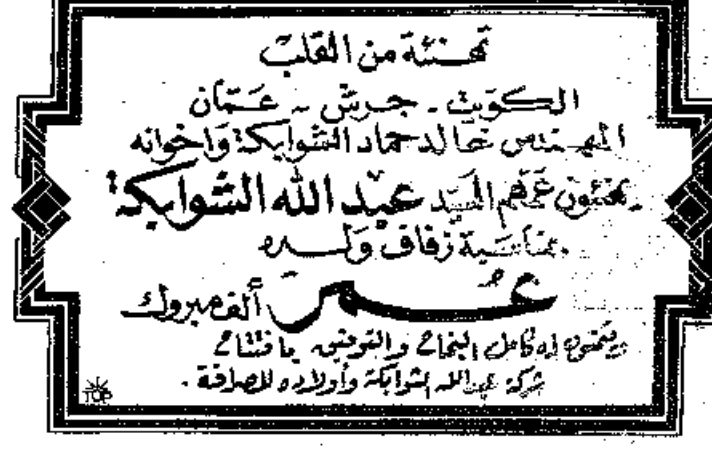 تهنئة من القلب
الكويت - جرش - عمّان
المهندس خالد حماد الشوابكة واخوانه
يهنئون عمّهم السيّد عبد الله الشوابكة
بمناسبة زفاف ولده
عمر ألف مبروك
ويتمنون له كامل النجاح والتوفيق بافتتاح
شركة عبد الله الشوابكة وأولاده للصرافة.
TOP